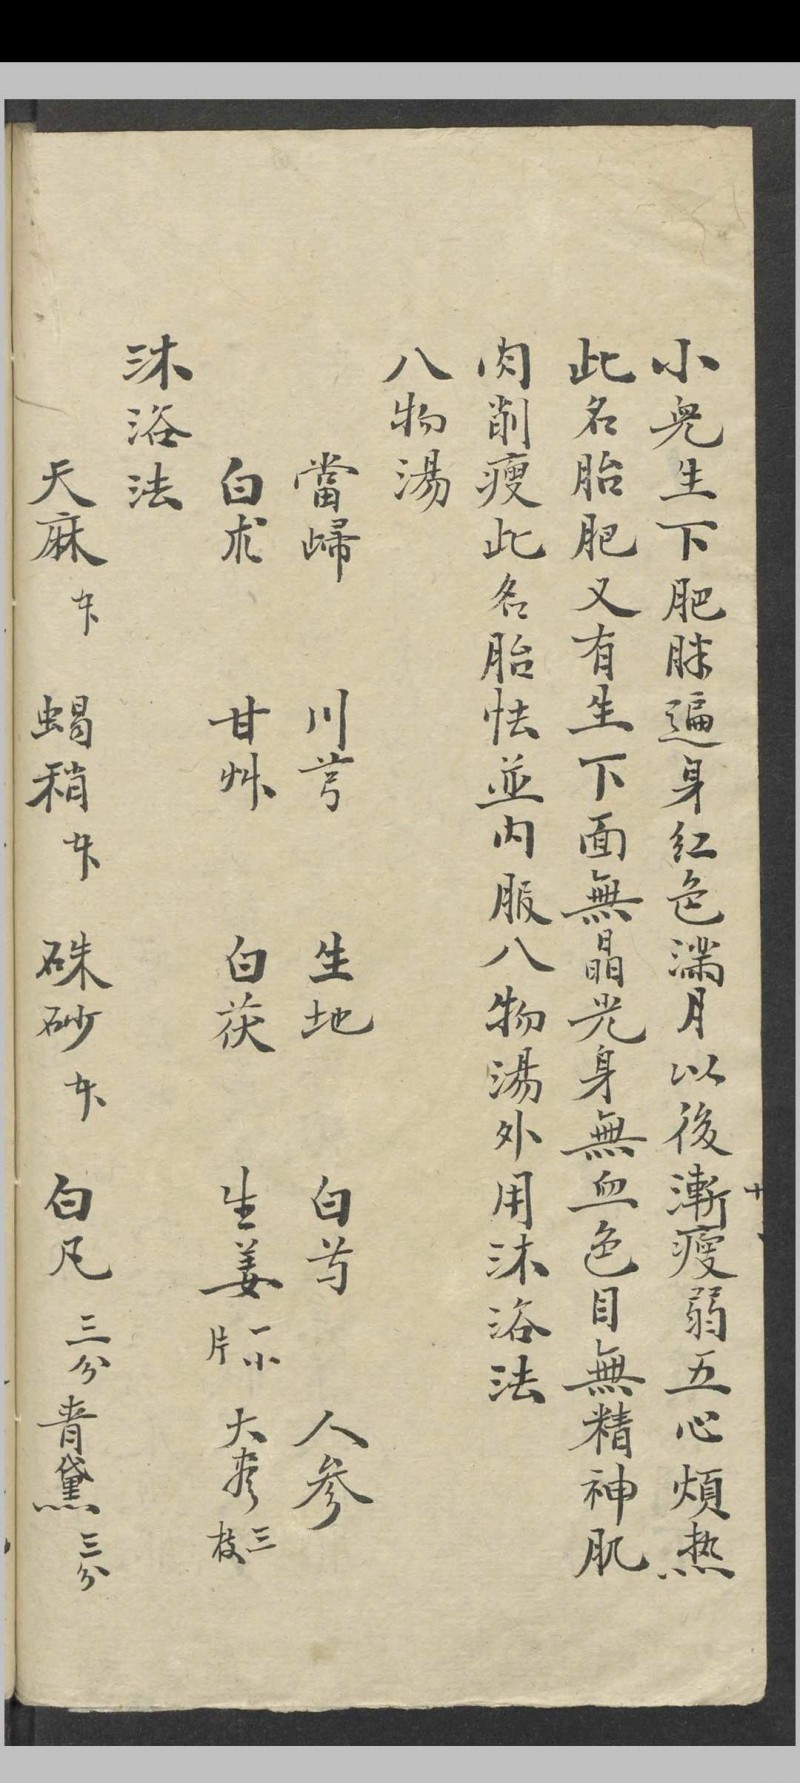 小兒生下肥胖遍身紅色滿月以後漸瘦弱五心煩热
此名胎肥又有生下面無晶光身無血色目無精神肌
肉削瘦此名胎怯並內服八物湯外用沐浴法
八物湯
當歸 川芎 生地 白芍 人參
白朮 甘艸 白茯 生姜 一小片 大枣 三枝
沐浴法
天麻 蝎稍 硃砂 白凡 三分 青黛 三分